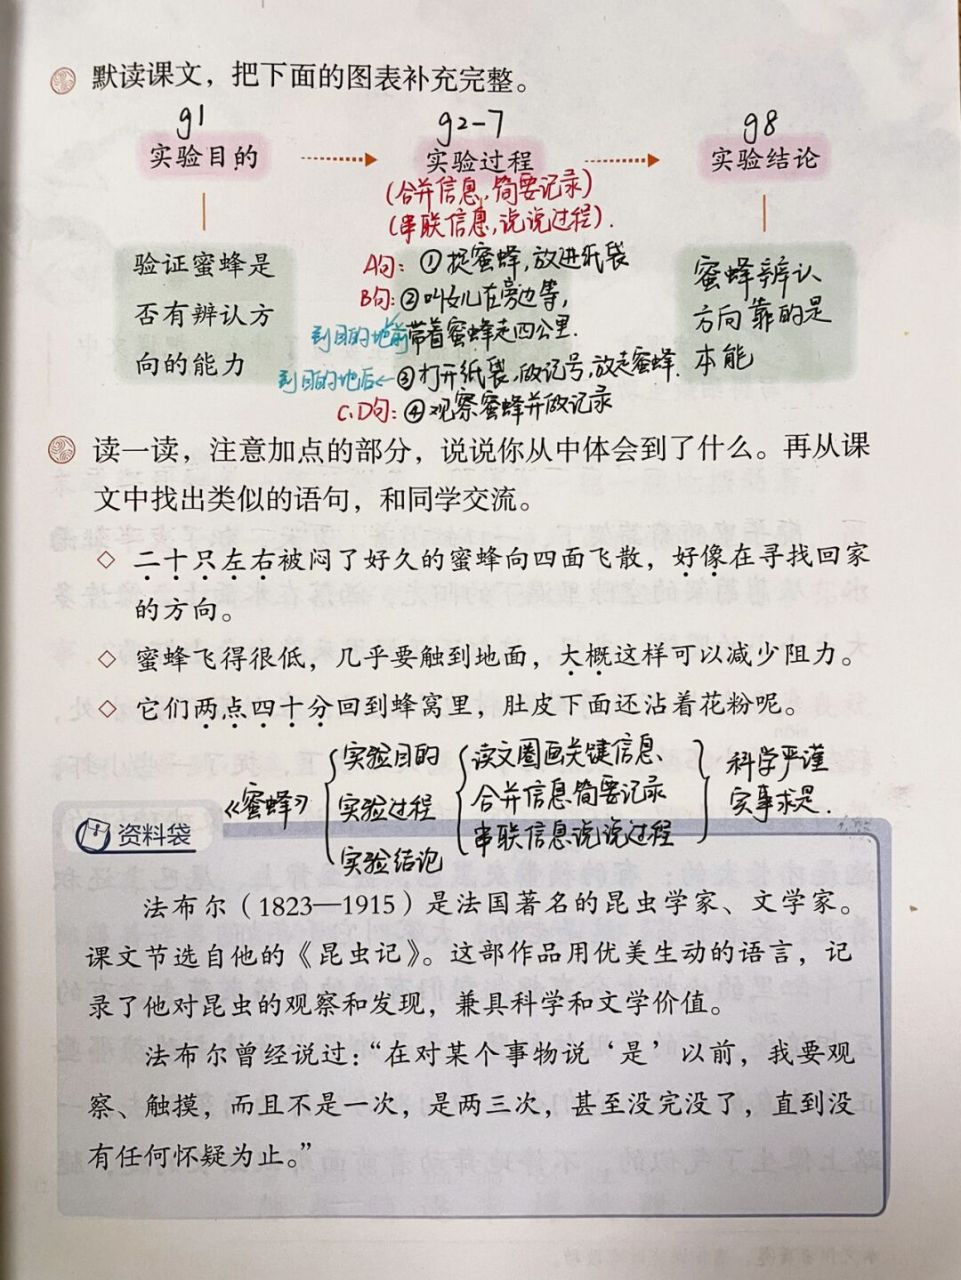 默读课文，把下面的图表补充完整。
g1 g2-7 g8
实验目的 实验过程 实验结论
(合并信息,简要记录)
(串联信息,说说过程).
验证蜜蜂是
否有辨认方
向的能力
A句：①捉蜜蜂,放进纸袋
B句：②叫女儿在旁边等,
到目的地前带着蜜蜂走四公里.
到目的地后←③打开纸袋,做记号,放走蜜蜂.
C.D句：④观察蜜蜂并做记录
蜜蜂辨认
方向靠的是
本能
读一读，注意加点的部分，说说你从中体会到了什么。再从课
文中找出类似的语句，和同学交流。
◇ 二十只左右被闷了好久的蜜蜂向四面飞散，好像在寻找回家
的方向。
◇ 蜜蜂飞得很低，几乎要触到地面，大概这样可以减少阻力。
◇ 它们两点四十分回到蜂窝里，肚皮下面还沾着花粉呢。
《蜜蜂》
实验目的
实验过程
实验结论
读文圈画关键信息、
合并信息简要记录
串联信息说说过程
科学严谨
实事求是.
资料袋
法布尔（1823—1915）是法国著名的昆虫学家、文学家。
课文节选自他的《昆虫记》。这部作品用优美生动的语言，记
录了他对昆虫的观察和发现，兼具科学和文学价值。
法布尔曾经说过：“在对某个事物说‘是’以前，我要观
察、触摸，而且不是一次，是两三次，甚至没完没了，直到没
有任何怀疑为止。”